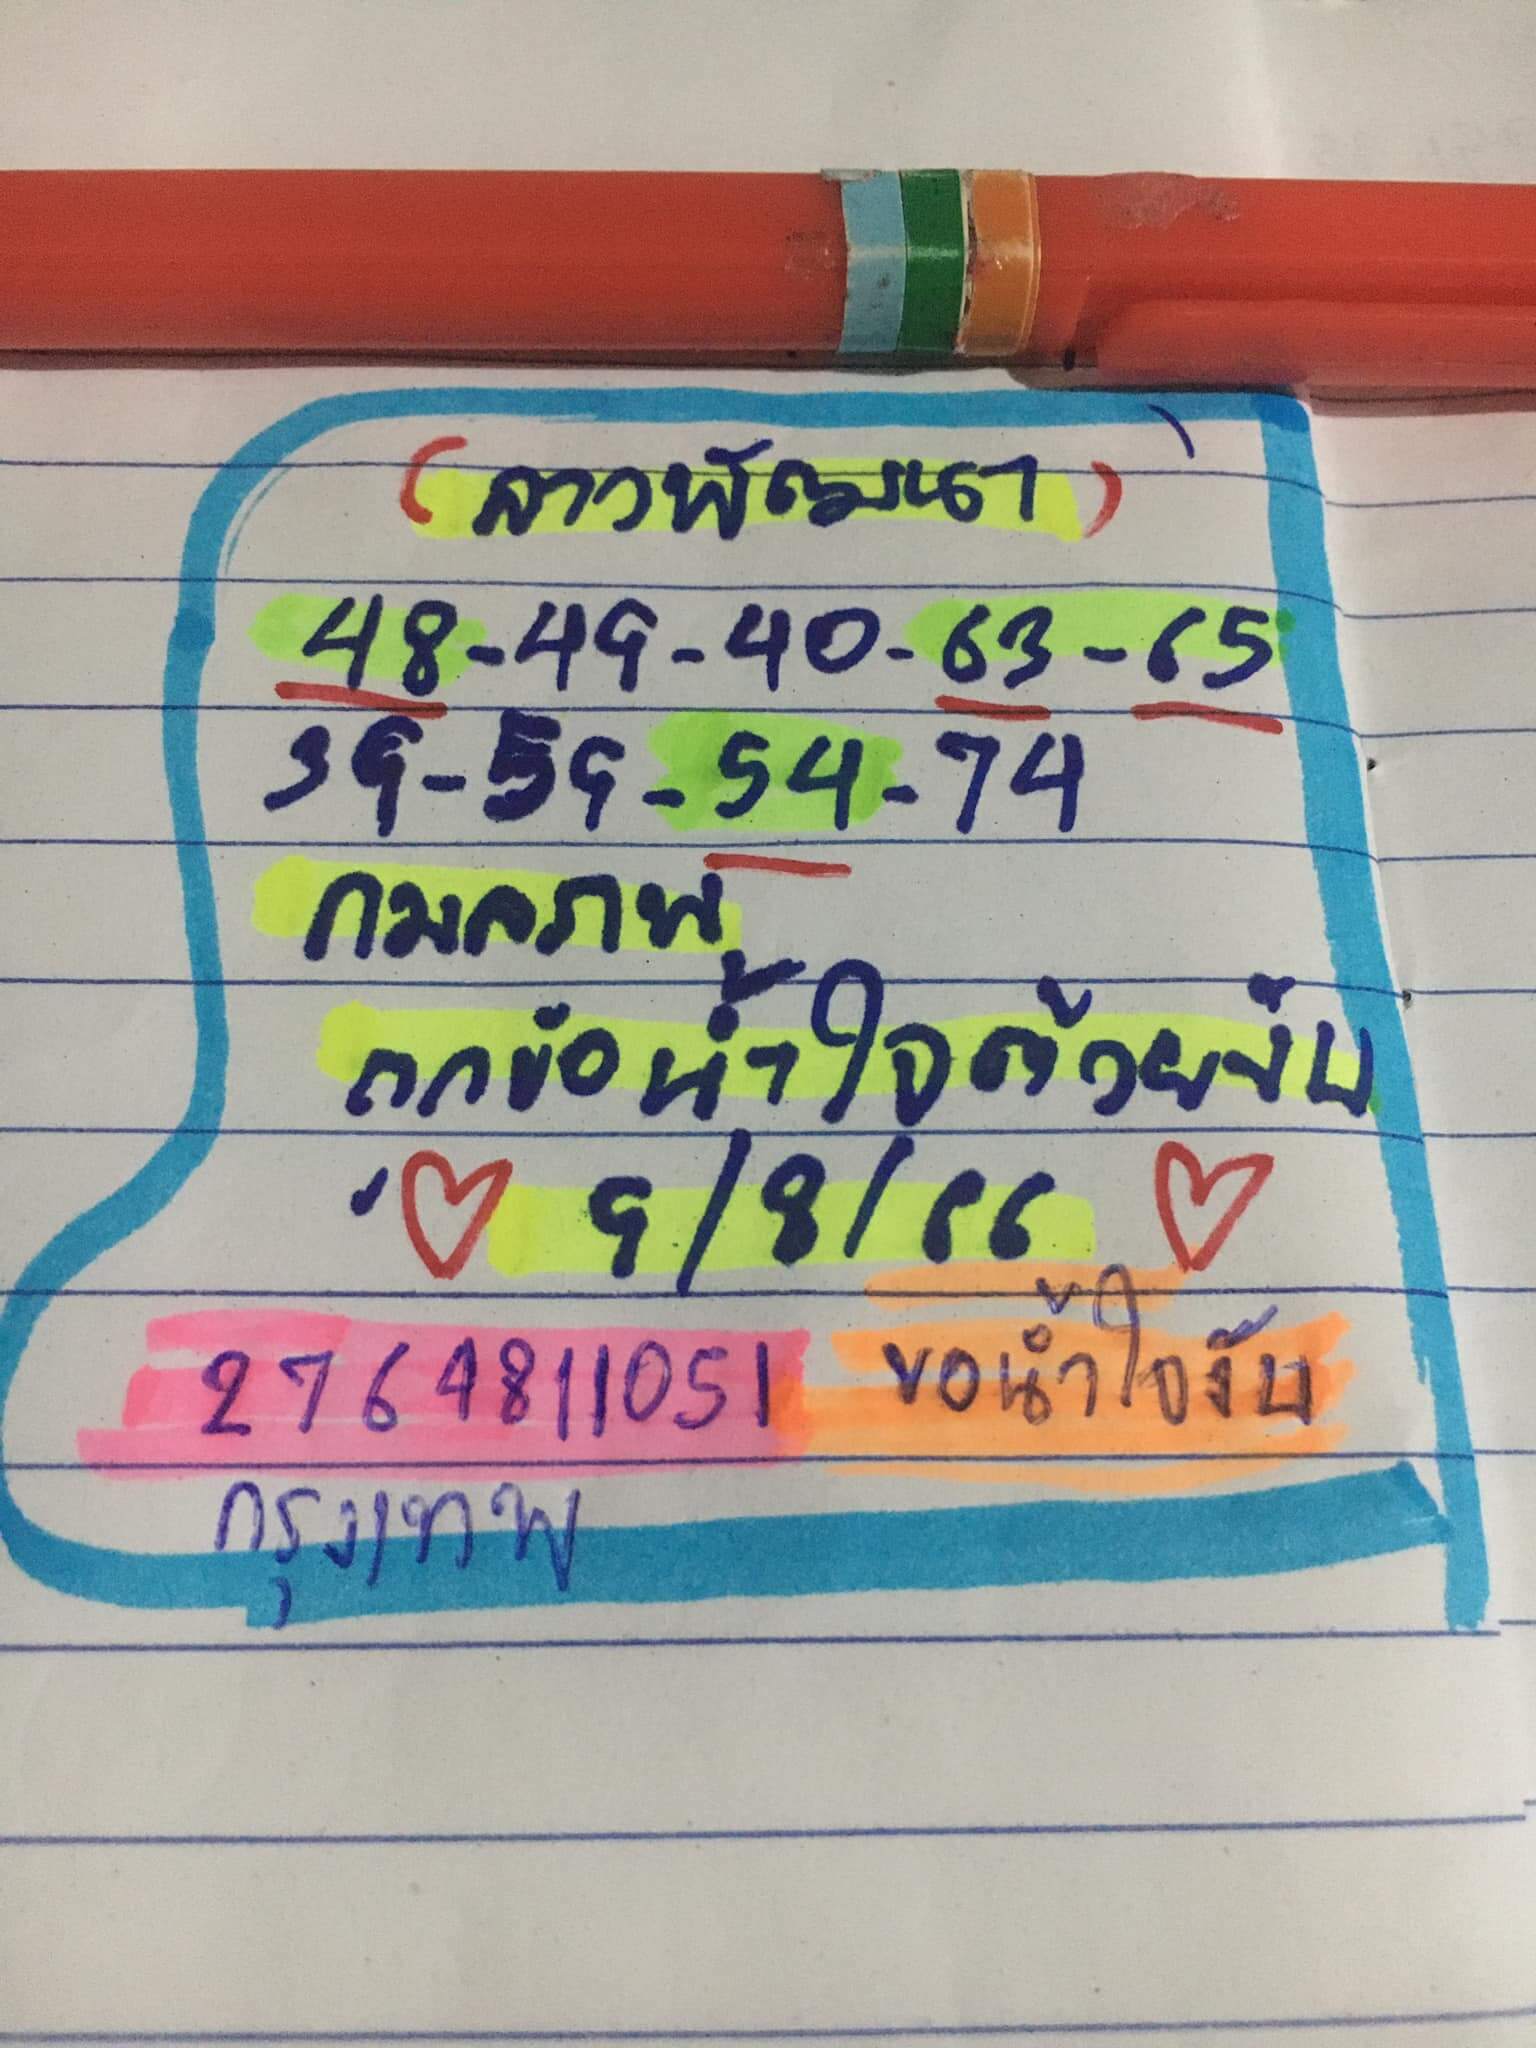 (ลาวพัฒนา)
48-49-40-63-65
39-59-54-74
กมลภพ
ถูกข้อน้ำใจด้วยงับ
9/8/66
2764811051 ขอน้ำใจงับ
กรุงเทพ